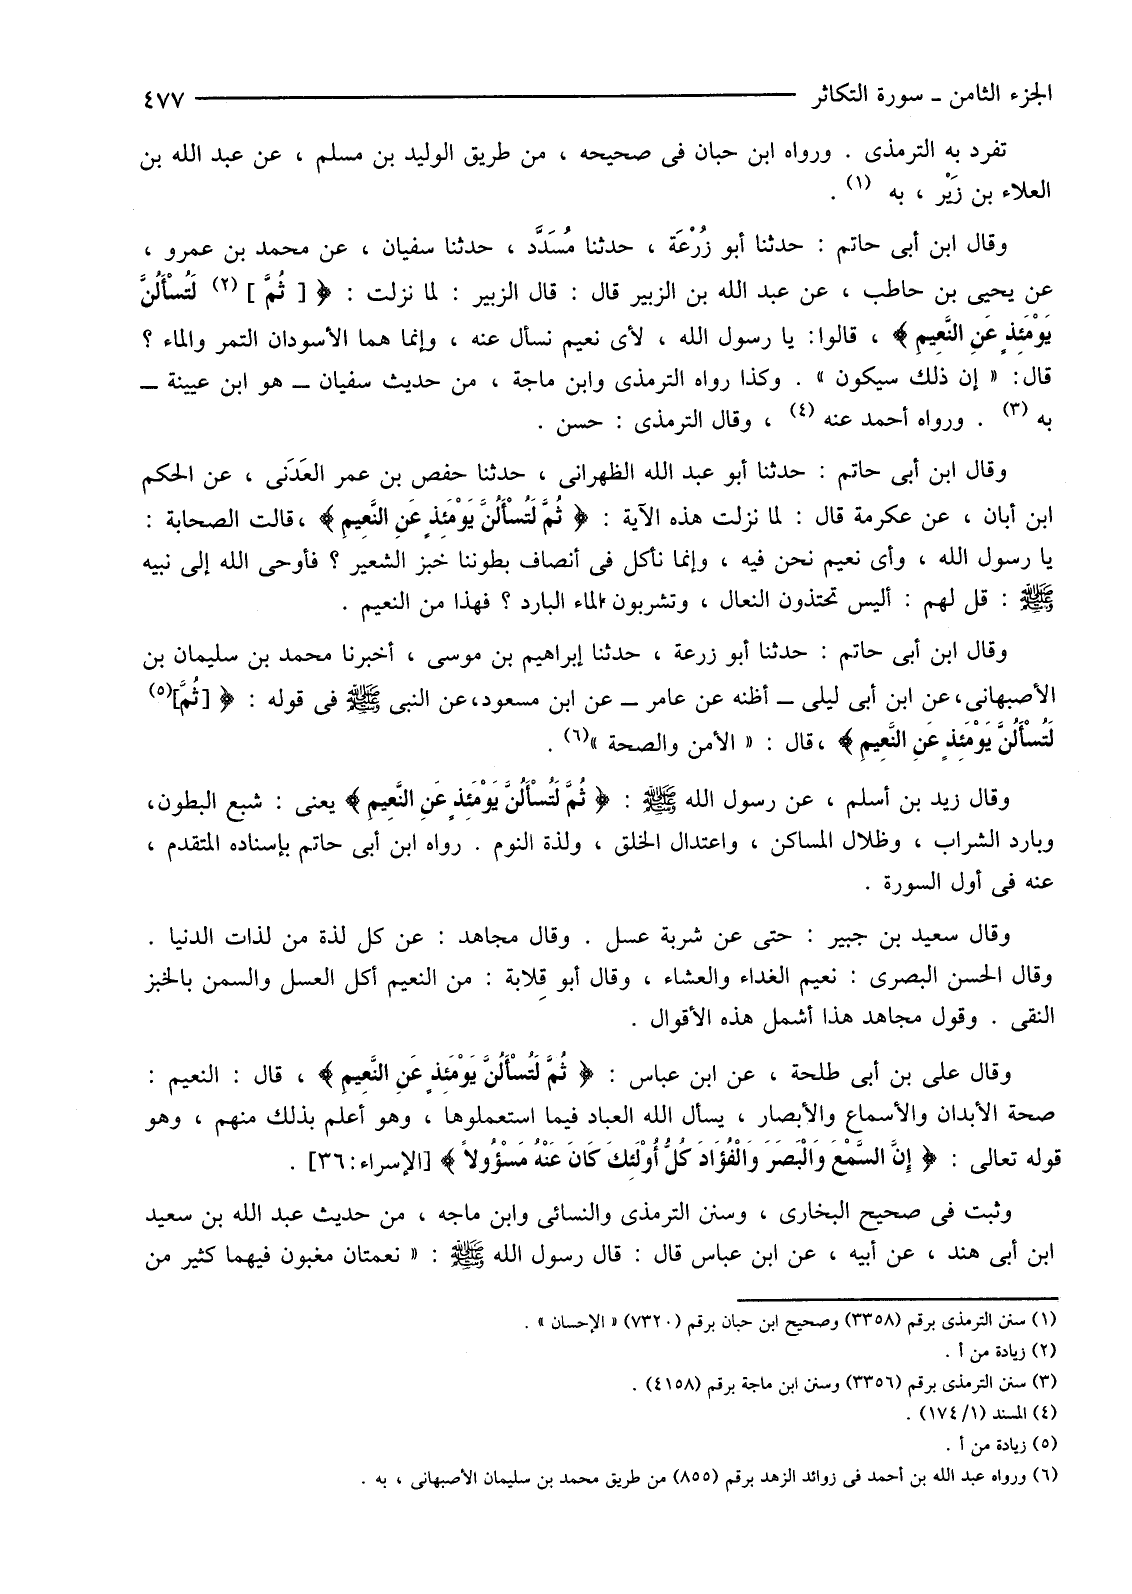 الجزء الثامن ـ سورة التكاثر ٤٧٧
تفرد به الترمذى . ورواه ابن حبان فى صحيحه ، من طريق الوليد بن مسلم ، عن عبد الله بن
العلاء بن زَبْر ، به (١) .
وقال ابن أبى حاتم : حدثنا أبو زُرْعَة ، حدثنا مُسَدَّد ، حدثنا سفيان ، عن محمد بن عمرو ،
عن يحيى بن حاطب ، عن عبد الله بن الزبير قال : قال الزبير : لما نزلت : ﴿ [ ثُمَّ ] (٢) لَتُسْأَلُنَّ
يَوْمَئِذٍ عَنِ النَّعِيمِ ﴾ ، قالوا: يا رسول الله ، لأى نعيم نسأل عنه ، وإنما هما الأسودان التمر والماء ؟
قال: « إن ذلك سيكون » . وكذا رواه الترمذى وابن ماجة ، من حديث سفيان ــ هو ابن عيينة ــ
به (٣) . ورواه أحمد عنه (٤) ، وقال الترمذى : حسن .
وقال ابن أبى حاتم : حدثنا أبو عبد الله الظهرانى ، حدثنا حفص بن عمر العَدَنى ، عن الحكم
ابن أبان ، عن عكرمة قال : لما نزلت هذه الآية : ﴿ ثُمَّ لَتُسْأَلُنَّ يَوْمَئِذٍ عَنِ النَّعِيمِ ﴾ ،قالت الصحابة :
يا رسول الله ، وأى نعيم نحن فيه ، وإنما نأكل فى أنصاف بطوننا خبز الشعير ؟ فأوحى الله إلى نبيه
ﷺ : قل لهم : أليس تحتذون النعال ، وتشربون الماء البارد ؟ فهذا من النعيم .
وقال ابن أبى حاتم : حدثنا أبو زرعة ، حدثنا إبراهيم بن موسى ، أخبرنا محمد بن سليمان بن
الأصبهانى،عن ابن أبى ليلى ــ أظنه عن عامر ــ عن ابن مسعود،عن النبى ﷺ فى قوله : ﴿ [ثُمَّ](٥)
لَتُسْأَلُنَّ يَوْمَئِذٍ عَنِ النَّعِيمِ ﴾ ،قال : « الأمن والصحة »(٦) .
وقال زيد بن أسلم ، عن رسول الله ﷺ : ﴿ ثُمَّ لَتُسْأَلُنَّ يَوْمَئِذٍ عَنِ النَّعِيمِ ﴾ يعنى : شبع البطون،
وبارد الشراب ، وظلال المساكن ، واعتدال الخلق ، ولذة النوم . رواه ابن أبى حاتم بإسناده المتقدم ،
عنه فى أول السورة .
وقال سعيد بن جبير : حتى عن شربة عسل . وقال مجاهد : عن كل لذة من لذات الدنيا .
وقال الحسن البصرى : نعيم الغداء والعشاء ، وقال أبو قِلابة : من النعيم أكل العسل والسمن بالخبز
النقى . وقول مجاهد هذا أشمل هذه الأقوال .
وقال على بن أبى طلحة ، عن ابن عباس : ﴿ ثُمَّ لَتُسْأَلُنَّ يَوْمَئِذٍ عَنِ النَّعِيمِ ﴾ ، قال : النعيم :
صحة الأبدان والأسماع والأبصار ، يسأل الله العباد فيما استعملوها ، وهو أعلم بذلك منهم ، وهو
قوله تعالى : ﴿ إِنَّ السَّمْعَ وَالْبَصَرَ وَالْفُؤَادَ كُلُّ أُوْلَئِكَ كَانَ عَنْهُ مَسْؤُولاً ﴾ [الإسراء:٣٦] .
وثبت فى صحيح البخارى ، وسنن الترمذى والنسائى وابن ماجه ، من حديث عبد الله بن سعيد
ابن أبى هند ، عن أبيه ، عن ابن عباس قال : قال رسول الله ﷺ : « نعمتان مغبون فيهما كثير من
(١) سنن الترمذى برقم (٣٣٥٨) وصحيح ابن حبان برقم (٧٣٢٠) « الإحسان » .
(٢) زيادة من أ .
(٣) سنن الترمذى برقم (٣٣٥٦) وسنن ابن ماجة برقم (٤١٥٨) .
(٤) المسند (١/ ١٧٤) .
(٥) زيادة من أ .
(٦) ورواه عبد الله بن أحمد فى زوائد الزهد برقم (٨٥٥) من طريق محمد بن سليمان الأصبهانى ، به .